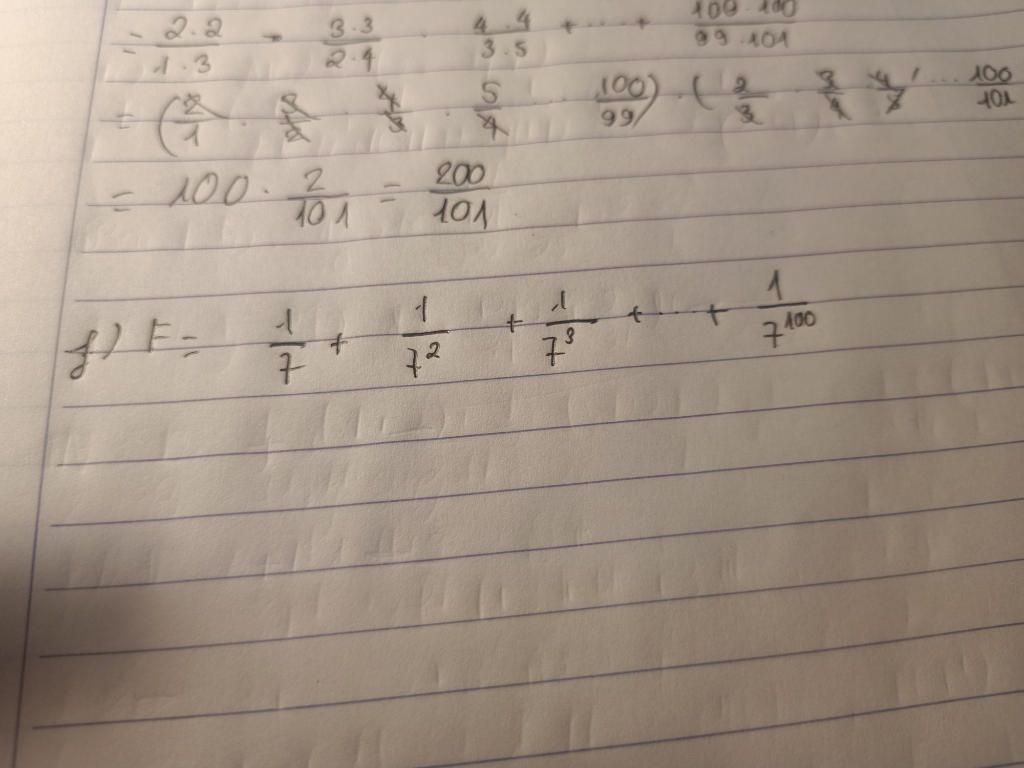 = 2.2/1.3 · 3.3/2.4 · 4.4/3.5 + ..... + 100.100/99.101
= (2/1 · 3/2 · 4/3 · 5/4 ... · 100/99) · (2/3 · 3/4 · 4/5 ' ... 100/101
= 100 · 2/101 = 200/101
f) F = 1/7 + 1/7² + 1/7³ + ..... + 1/7¹⁰⁰